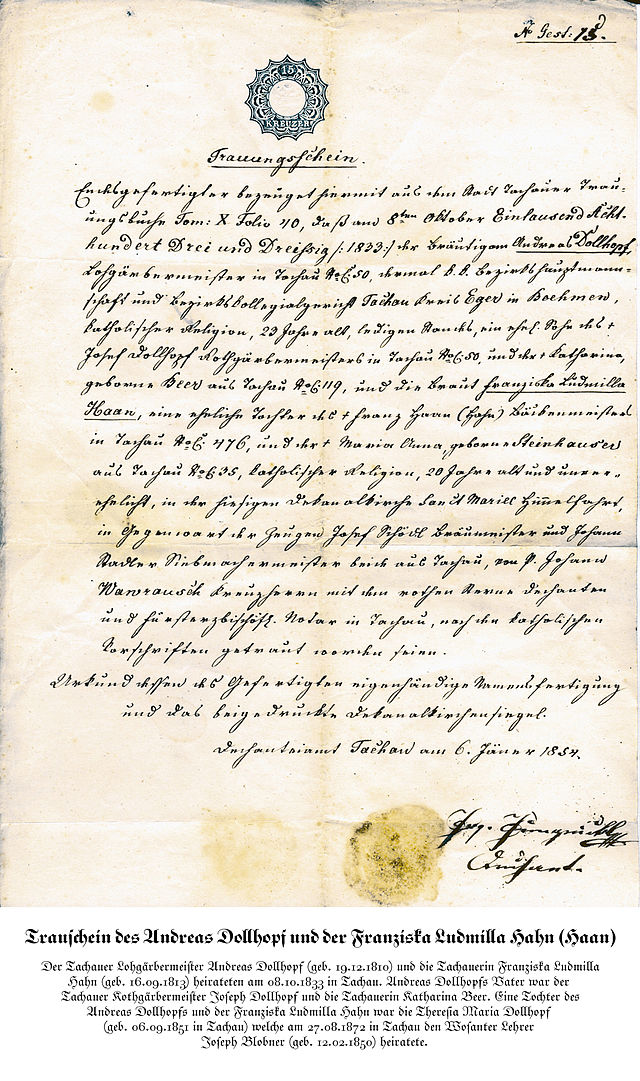 No Gest: 13.
15
KREUZER
Trauungsschein.
Endesgefertigter bezeuget hiermit aus dem Stadt Tachauer Trau-
ungsbuche Tom: X Folio 40, daß am 8ten Oktober Eintausend Acht-
hundert Drei und Dreissig /:1833:/ der Bräutigam Andreas Dollhopf,
Lohgärbermeister in Tachau No C. 50, dermal k. k. Bezirkshauptmann-
schaft und Bezirkskollegialgericht Tachau Kreis Eger in Boehmen,
katholischer Religion, 23 Jahre alt, ledigen Standes, ein ehel. Sohn des +
Josef Dollhopf Rothgärbermeisters in Tachau No C. 50, und der + Katharina,
geborne Beer aus Tachau No C. 119, und die Braut Franziska Ludmilla
Haan, eine eheliche Tochter des + Franz Haan (Hahn) Bäckenmeisters
in Tachau No C. 476, und der + Maria Anna, geborne Steinhauser
aus Tachau No C. 35, katholischer Religion, 20 Jahre alt und unver-
ehelicht, in der hiesigen Dekanalkirche Sanct Mariae Himmelfahrt,
in Gegenwart der Zeugen Josef Schödl Bräumeister und Johann
Stadler Siebmachermeister beide aus Tachau, von P. Johann
Wawrausch Kreuzherrn mit dem rothen Sterne Dechanten
und fürsterzbischöfl. Notar in Tachau, nach den katholischen
Vorschriften getraut worden seien.
Urkund dessen des Gefertigten eigenhändige Namensfertigung
und das beigedruckte Dekanalkirchensiegel.
Dechanteiamt Tachau am 6. Jäner 1854.
Dechant.
Trauschein des Andreas Dollhopf und der Franziska Ludmilla Hahn (Haan)
Der Tachauer Lohgärbermeister Andreas Dollhopf (geb. 19.12.1810) und die Tachauerin Franziska Ludmilla
Hahn (geb. 16.09.1813) heirateten am 08.10.1833 in Tachau. Andreas Dollhopfs Vater war der
Tachauer Rothgärbermeister Joseph Dollhopf und die Tachauerin Katharina Beer. Eine Tochter des
Andreas Dollhopfs und der Franziska Ludmilla Hahn war die Theresia Maria Dollhopf
(geb. 06.09.1851 in Tachau) welche am 27.08.1872 in Tachau den Wosanter Lehrer
Joseph Blobner (geb. 12.02.1850) heiratete.